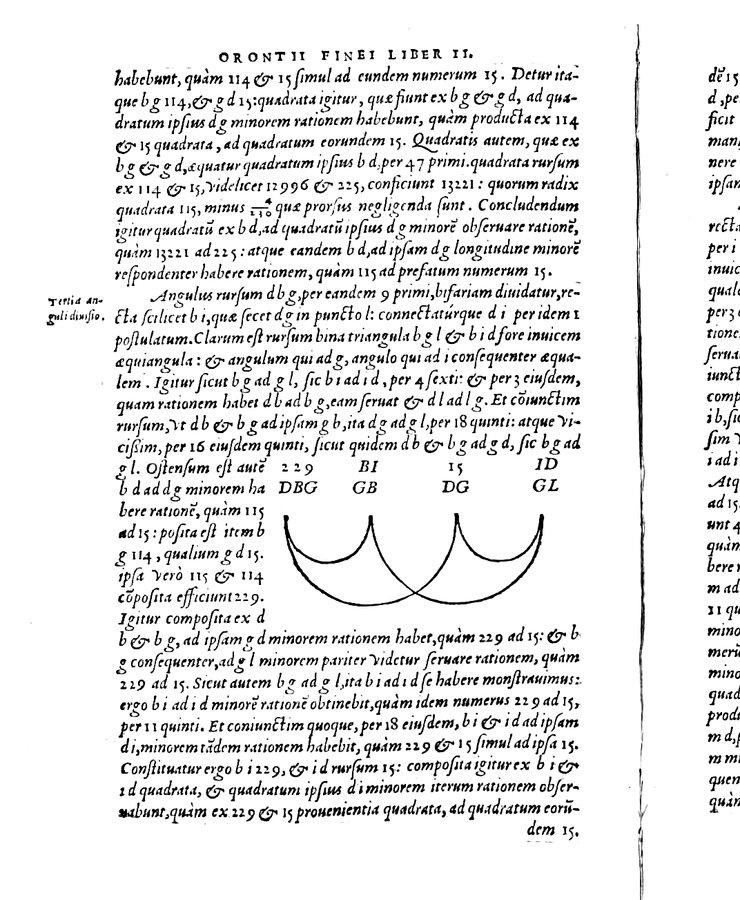 ORONTII FINEI LIBER II.
habebunt, quàm 114 & 15 simul ad eundem numerum 15. Detur ita-
que b g 114, & g d 15: quadrata igitur, quæ fiunt ex b g & g d, ad qua-
dratum ipsius d g minorem rationem habebunt, quàm producta ex 114
& 15 quadrata, ad quadratum eorundem 15. Quadratis autem, quæ ex
b g & g d, æquatur quadratum ipsius b d, per 47 primi. quadrata rursum
ex 114 & 15, videlicet 12996 & 225, conficiunt 13221: quorum radix
quadrata 115, minus 4/230 quæ prorsus negligenda sunt. Concludendum
igitur quadratū ex b d, ad quadratū ipsius d g minorē obseruare rationē,
quàm 13221 ad 225: atque eandem b d, ad ipsam d g longitudine minorē
respondenter habere rationem, quàm 115 ad præfatum numerum 15.
Tertia an-
guli diuisio.
Angulus rursum d b g, per eandem 9 primi, bifariam diuidatur, re-
cta scilicet b i, quæ secet d g in puncto l: connectaturque d i per idem 1
postulatum. Clarum est rursum bina triangula b g l & b i d fore inuicem
æquiangula: & angulum qui ad g, angulo qui ad i consequenter æqua-
lem. Igitur sicut b g ad g l, sic b i ad i d, per 4 sexti: & per 3 eiusdem,
quam rationem habet d b ad b g, eam seruat & d l ad l g. Et cōiunctim
rursum, vt d b & b g ad ipsam g b, ita d g ad g l, per 18 quinti: atque vi-
cissim, per 16 eiusdem quinti, sicut quidem d b & b g ad g d, sic b g ad
g l. Ostensum est autē
b d ad d g minorem ha
bere rationē, quàm 115
ad 15: posita est item b
g 114, qualium g d 15.
ipsa verò 115 & 114
cōposita efficiunt 229.
Igitur composita ex d
229 BI 15 ID
DBG GB DG GL
b & b g, ad ipsam g d minorem rationem habet, quàm 229 ad 15: & b
g consequenter, ad g l minorem pariter videtur seruare rationem, quàm
229 ad 15. Sicut autem b g ad g l, ita b i ad i d se habere monstrauimus:
ergo b i ad i d minorē rationē obtinebit, quàm idem numerus 229 ad 15,
per 11 quinti. Et coniunctim quoque, per 18 eiusdem, b i & i d ad ipsam
d i, minorem tādem rationem habebit, quàm 229 & 15 simul ad ipsa 15.
Constituatur ergo b i 229, & i d rursum 15: composita igitur ex b i &
i d quadrata, & quadratum ipsius d i minorem iterum rationem obser-
uabunt, quàm ex 229 & 15 prouenientia quadrata, ad quadratum eorū-
dem 15.